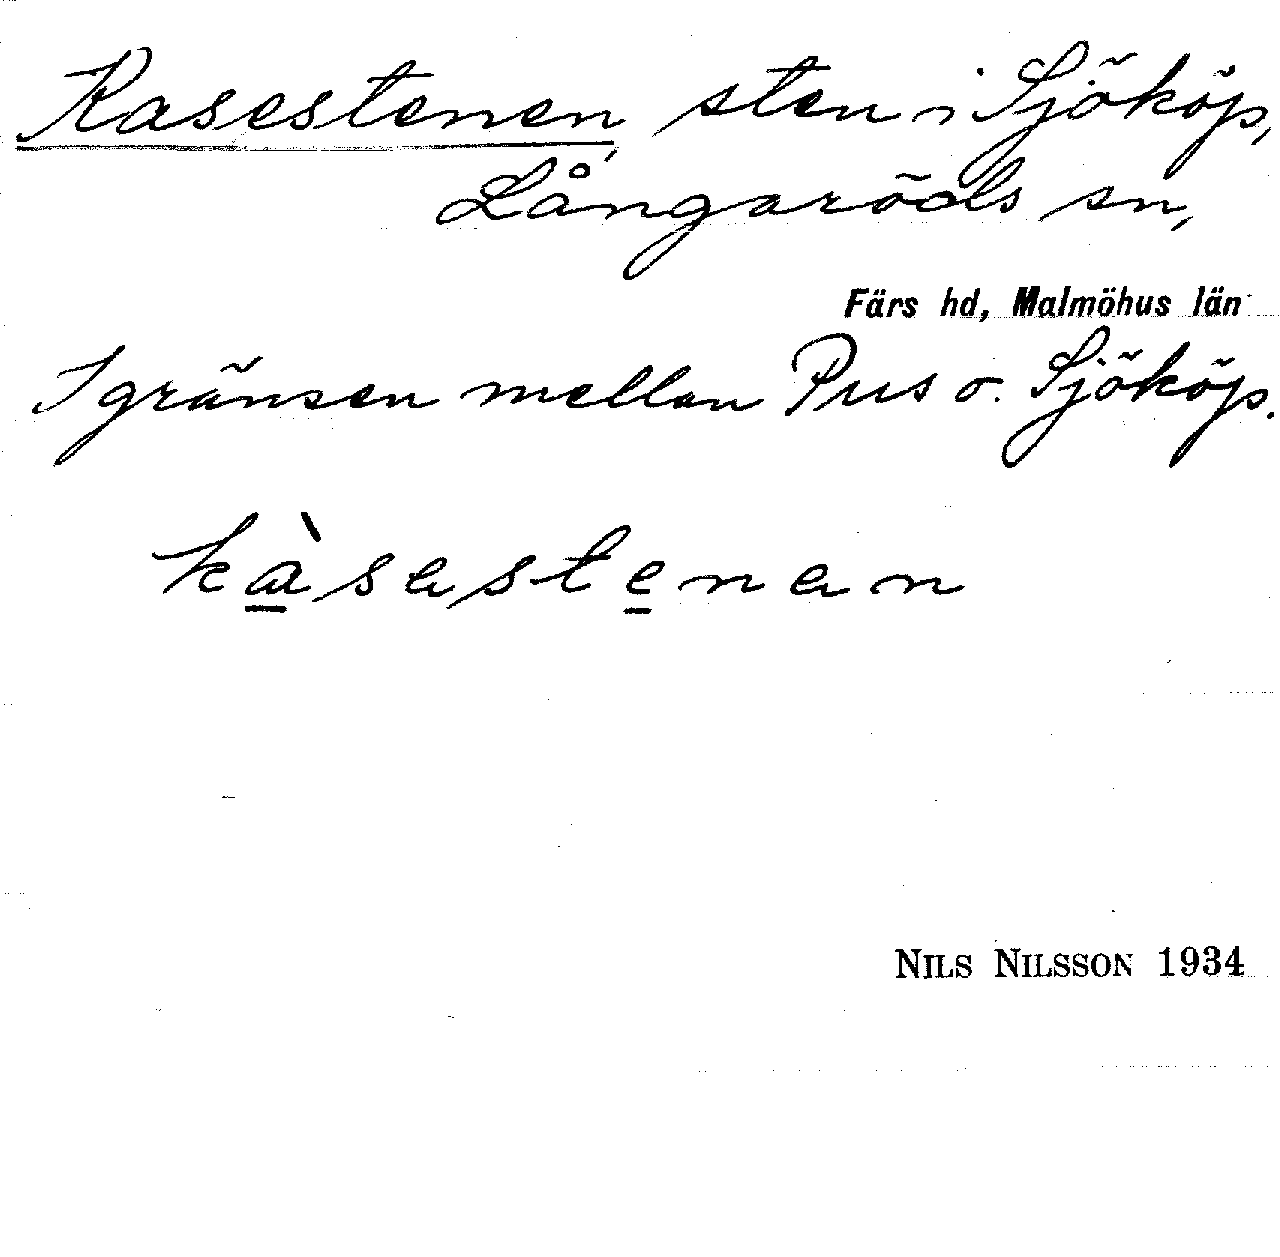 Kasestenen, sten i Sjököp,
Långaröds sn,
Färs hd, Malmöhus län
I gränsen mellan Pus o. Sjököp.
kàsestenen
NILS NILSSON 1934